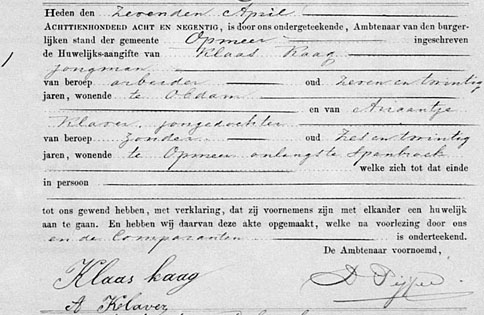 Heden den zevenden April
ACHTTIENHONDERD ACHT EN NEGENTIG, is door ons ondergeteekende, Ambtenaar van den burger-
lijken stand der gemeente Opmeer ingeschreven
de Huwelijks-aangifte van Klaas Kaag
jongman
van beroep arbeider oud zeven en twintig
jaren, wonende te Obdam
en van Ariaantje
Klaver, jongedochter
van beroep zonder oud zes en twintig
jaren, wonende te Opmeer onlangs te Spanbroek
welke zich tot dat einde
in persoon
tot ons gewend hebben, met verklaring, dat zij voornemens zijn met elkander een huwelijk
aan te gaan. En hebben wij daarvan deze akte opgemaakt, welke na voorlezing door ons
en de Comparanten is onderteekend.
De Ambtenaar voornoemd,
Klaas kaag
A Klaver